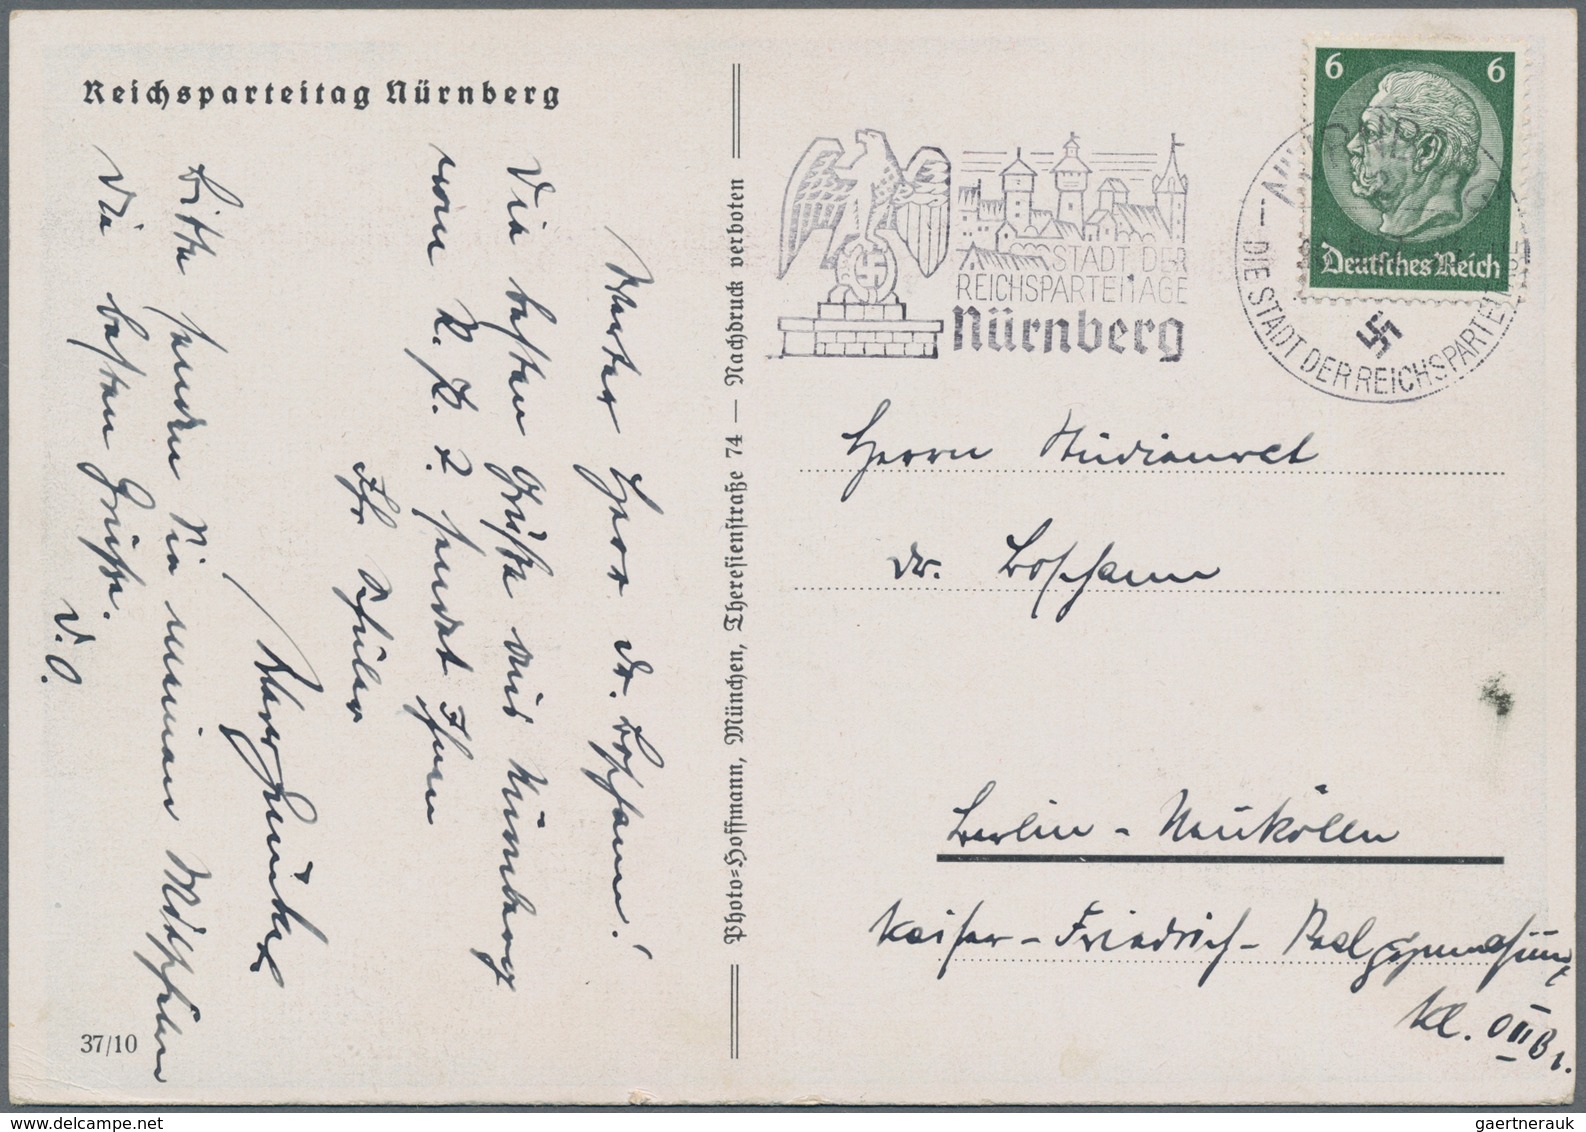 Reichsparteitag Nürnberg
Werter Herr Dr. Boßhamm!
Die besten Grüße aus Nürnberg
vom R. P. T. sendet Ihnen
Ihr Schüler
Bitte senden Sie meinen Mitschülern
die besten Grüsse.
D.O.
37/10
Photo-Hoffmann, München, Theresienstraße 74 — Nachdruck verboten
STADT DER
REICHSPARTEITAGE
Nürnberg
6 6
Deutsches Reich
NÜRNBERG
DIE STADT DER REICHSPARTEITAGE
Herrn Studienrat
Dr.
Berlin - Neukölln
Kaiser - Friedrich - Realgymnasium
Kl. OIIIB1.
gaertnerauk